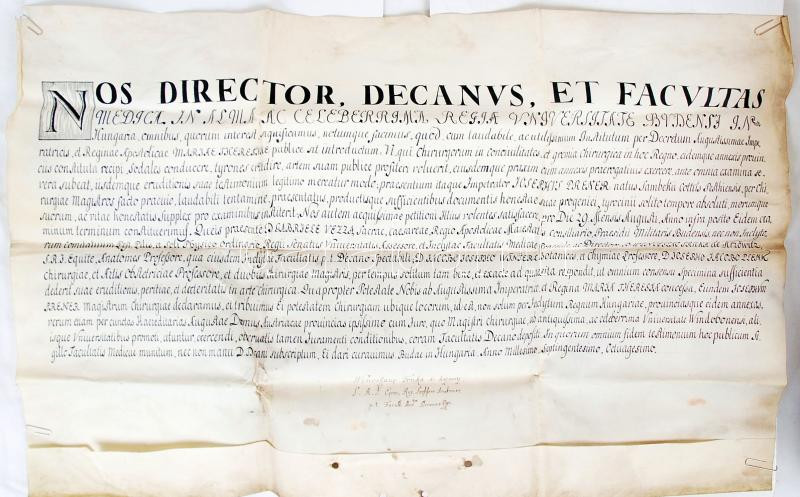 NOS DIRECTOR, DECANVS, ET FACVLTAS
MEDICA, IN ALMA, AC CELEBERRIMA, REGIA VNIVERSITATE BUDENSI IN
Hungaria, omnibus, quorum interest significamus, notumque facimus, quod, cum laudabile, ac utilissimum Institutum per Decretum Augustissimae Impe
ratricis, et Reginae Apostolicae MARIAE THERESIAE publice sit introductum. Vt qui Chirurgorum in concivilitates, et gremia Chirurgica in hoc Regno, eidemque annexis provin
ciis constituta recipi, Sodales conducere, tyrones erudire, artem suam publice profiteri voluerit, eiusdemque praxim cum annexis praerogativis exercere, ante omnia examina se
vera subeat, iisdemque eruditionis suae testimonium legitimo mereatur modo, praesentium itaque Impetrator JOSEPHUS PRENER natus Sambeki Cottis Pesthiensis, per Chi
rurgiae Magistros facto praevio, laudabili tentamine, praesentatus, productisque sufficientibus documentis honestae suae progeniei, tyrocinii solito tempore absoluti, morumque
suorum, ac vitae honestatis Supplex pro examinibus institerit. Nos autem aequissimae petitioni Illius volentes satisfacere, pro Die 29 Mensis Augusti, Anno infra posito Eidem cer
minum terminum constituerimus. Queis praesente D. GABRIELE VEZZA Sacrae, Caesareae, Regio Apostolicae Maiestatis Consiliario, Praesidii Militaris Budensis, nec non Inclytor
rum Regii Senatus Vniversitatis Assessore, et Inclytae Facultatis Medicae
S.R.I. Equite, Anatomes Professore, qua eiusdem Inclytae Facultatis p. t. Decano Spectabili, D. JACOBO JOSEPHO WINTERL Botanices, et Chymiae Professore, D. JOSEPHO JACOBO PLENK
Chirurgiae, et Artis Obstetriciae Professore, et duobus Chirurgiae Magistris, per tempus solitum tam bene, et exacte ad quaesita respondit, ut omnium consensu Specimina sufficientia
dederit suae eruditionis, peritiae, et dexteritatis in arte Chirurgica. Quapropter Potestate Nobis ab Augustissima Imperatrice, et Regina MARIA THERESIA concessa, Eundem JOSEPHUM
PRENER Magistrum Chirurgiae declaravimus, ei tribuimus Ei potestatem Chirurgiam ubique locorum, id est, non solum per Inclytum Regnum Hungariae, provinciasque eidem annexas,
verum etiam per cunctas Haereditarias Augustae Domus Austriacae provincias ipsissimo eum Jure, quo Magistri Chirurgiae, ab antiquissima, ac celeberrima Vniversitate Windobonensi, ali
isque Vniversitatibus promoti, utuntur, exercendi, observatis tamen Juramenti conditionibus, coram Facultatis Decano depositi. In quorum omnium fidem testimonium hoc publicum Si
gillo Facultatis Medicae munitum, nec non manu D. Decani subscriptum, Ei dari curavimus Budae in Hungaria Anno Millesimo, Septingentesimo, Octuagesimo.